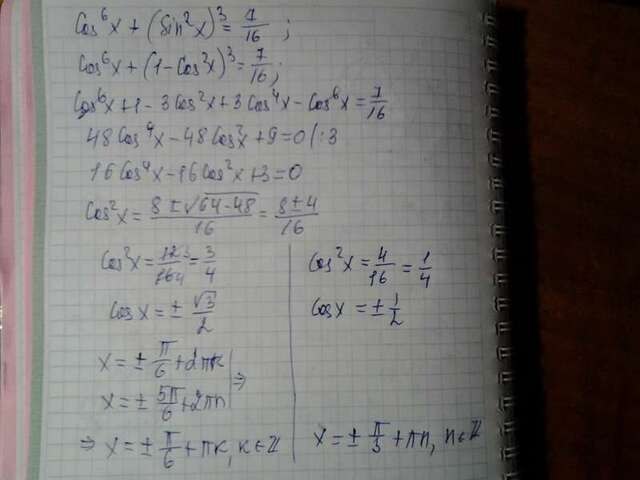 Cos⁶x + (Sin²x)³ = 7/16 ;
Cos⁶x + (1 - Cos²x)³ = 7/16 ;
Cos⁶x + 1 - 3Cos²x + 3Cos⁴x - Cos⁶x = 7/16
48Cos⁴x - 48Cos²x + 9 = 0 /:3
16Cos⁴x - 16Cos²x + 3 = 0
Cos²x = (8 ± √(64-48))/16 = (8 ± 4)/16
Cos²x = 12 3/16 4 = 3/4
Cosx = ± √3/2
x = ± π/6 + 2πk
x = ± 5π/6 + 2πn ⇒
⇒ x = ± π/6 + πk, k ∈ Z
Cos²x = 4/16 = 1/4
Cosx = ± 1/2
x = ± π/3 + πn, n ∈ Z